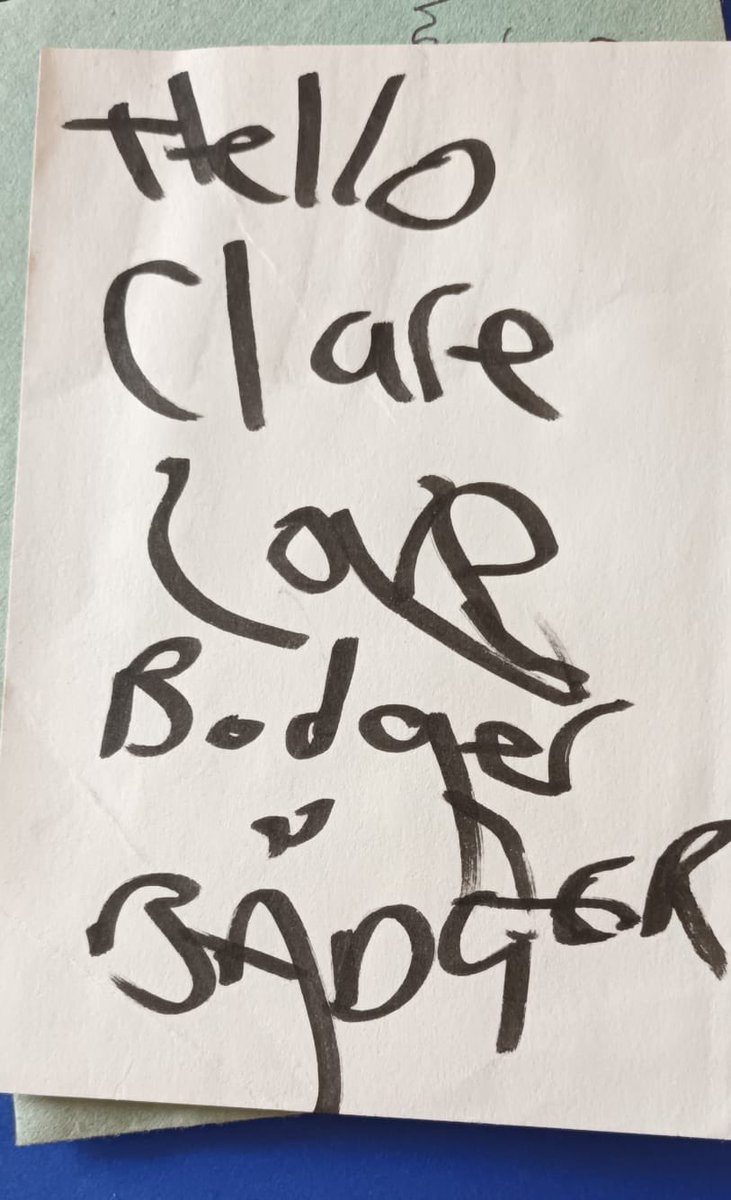 Hello
Clare
Love
Bodger
n
BADGER